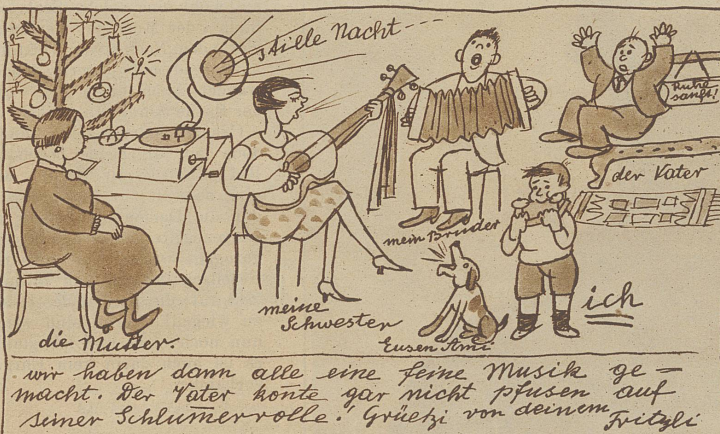 stille Nacht - - -
Ruhe
sanft!
der Vater
mein Bruder
ich
meine
Schwester
Eusen Ami
die Mutter.
wir haben dann alle eine feine Musik ge=
macht. Der Vater konte gar nicht pfusen auf
seiner Schlumerrolle! Grüetzi von deinem Fritzli